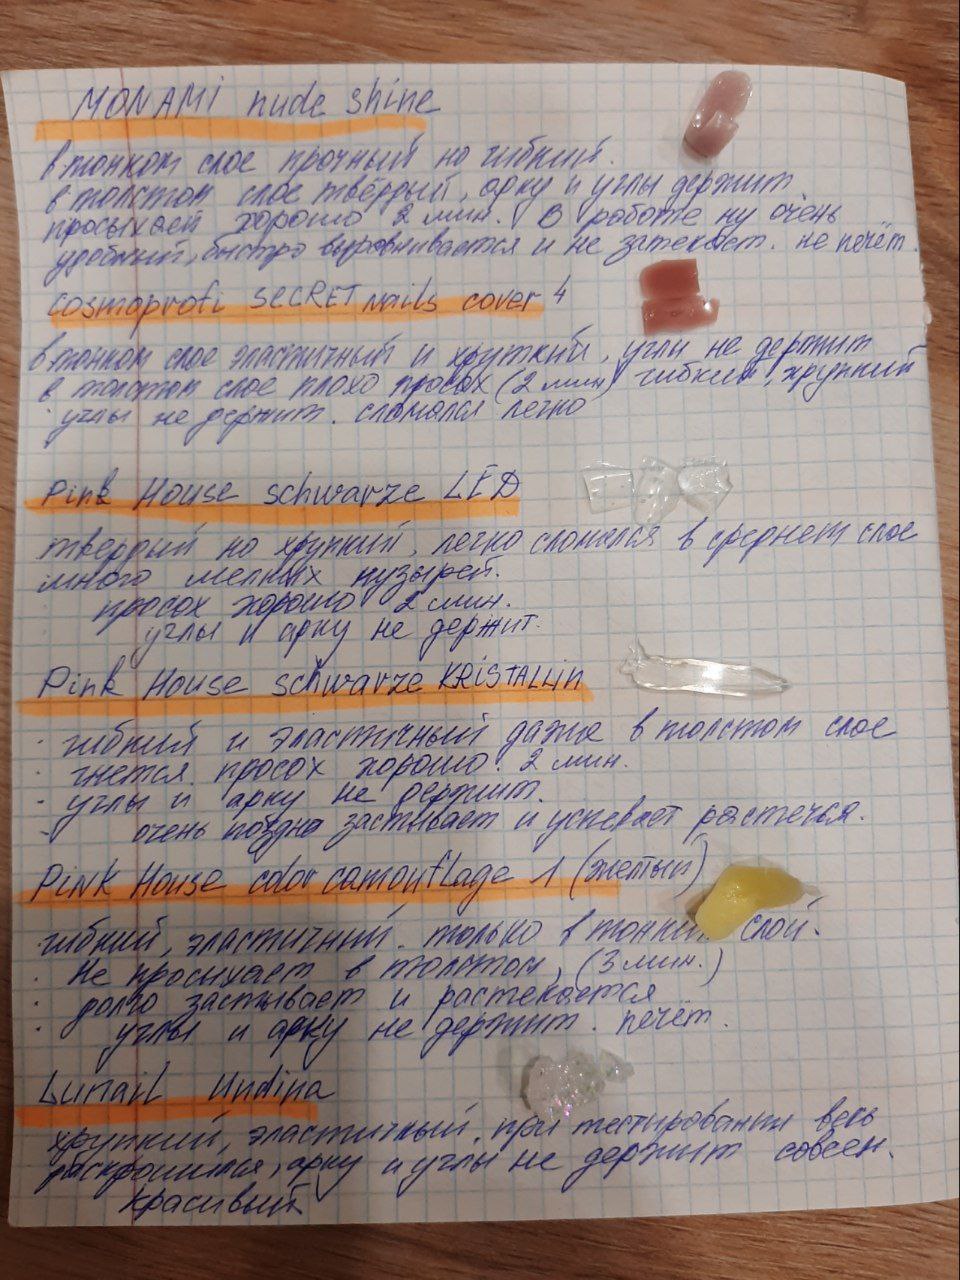 MONAMI nude shine
в тонком слое прочный но гибкий.
в толстом слое твёрдый, арку и углы держит
просыхает хорошо 2 мин. В работе ну очень
удобный, быстро выравнивается и не затекает. не печёт.
cosmoprofi SECRET nails cover 4
в тонком слое эластичный и хрупкий, углы не держит
в толстом слое плохо просох (2 мин) гибкий, хрупкий
углы не держит. сломался легко
Pink House schwarze LED
твёрдый но хрупкий, легко сломался в среднем слое
много мелких пузырей.
просох хорошо 2 мин.
углы и арку не держит.
Pink House schwarze KRISTALLin
гибкий и эластичный даже в толстом слое
гнется, просох хорошо. 2 мин.
углы и арку не держит.
очень поздно застывает и успевает растечься.
Pink House color camouflage 1 (желтый)
гибкий, эластичный. только в тонкий слой.
не просыхает в толстом, (3 мин.)
долго застывает и растекается
углы и арку не держит. печёт.
Lunail Undina
хрупкий, эластичный, при тестировании весь
раскрошился, арку и углы не держит совсем.
красивый